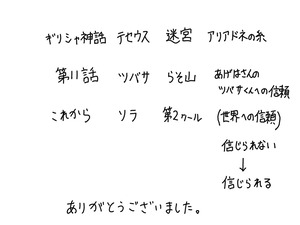 ギリシャ神話 テセウス 迷宮 アリアドネの糸
第11話 ツバサ らそ山 あげはさんの
ツバサくんへの信頼
これから ソラ 第2クール (世界への信頼)
信じられない
↓
信じられる
ありがとうございました。